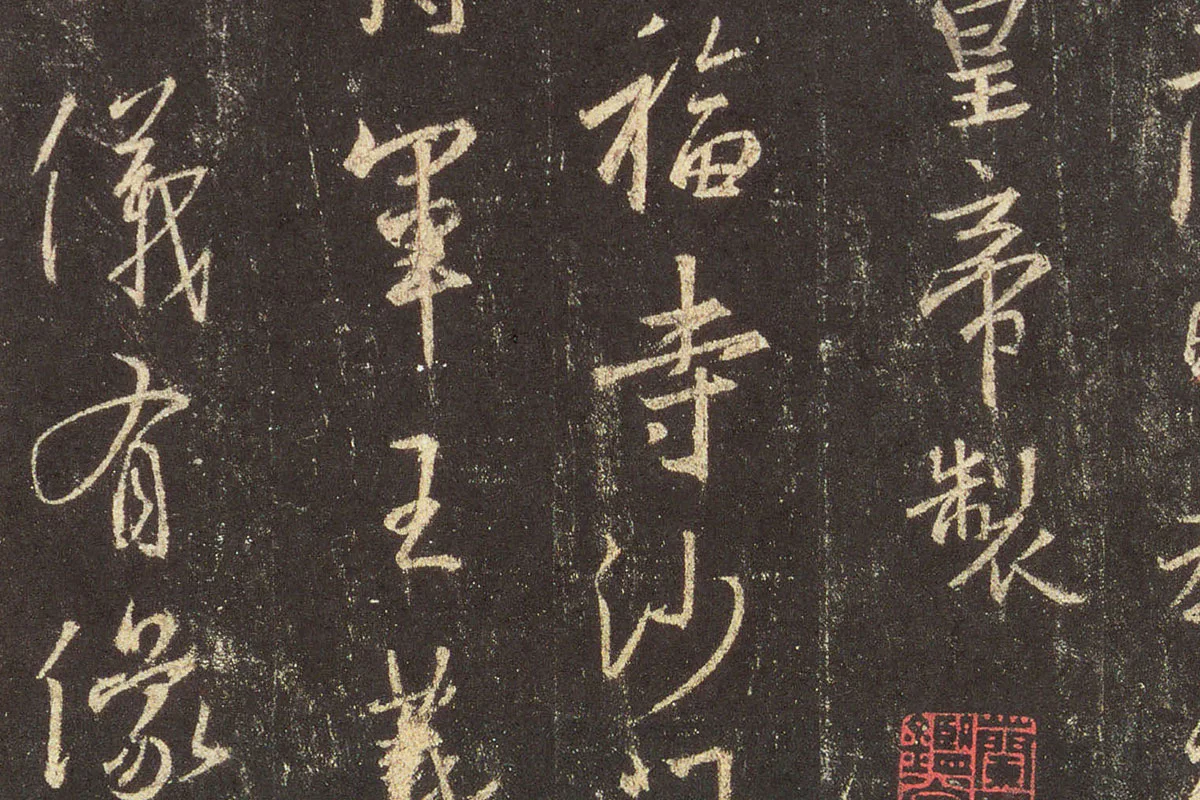 皇帝製
福寺沙門
軍王羲
儀有像